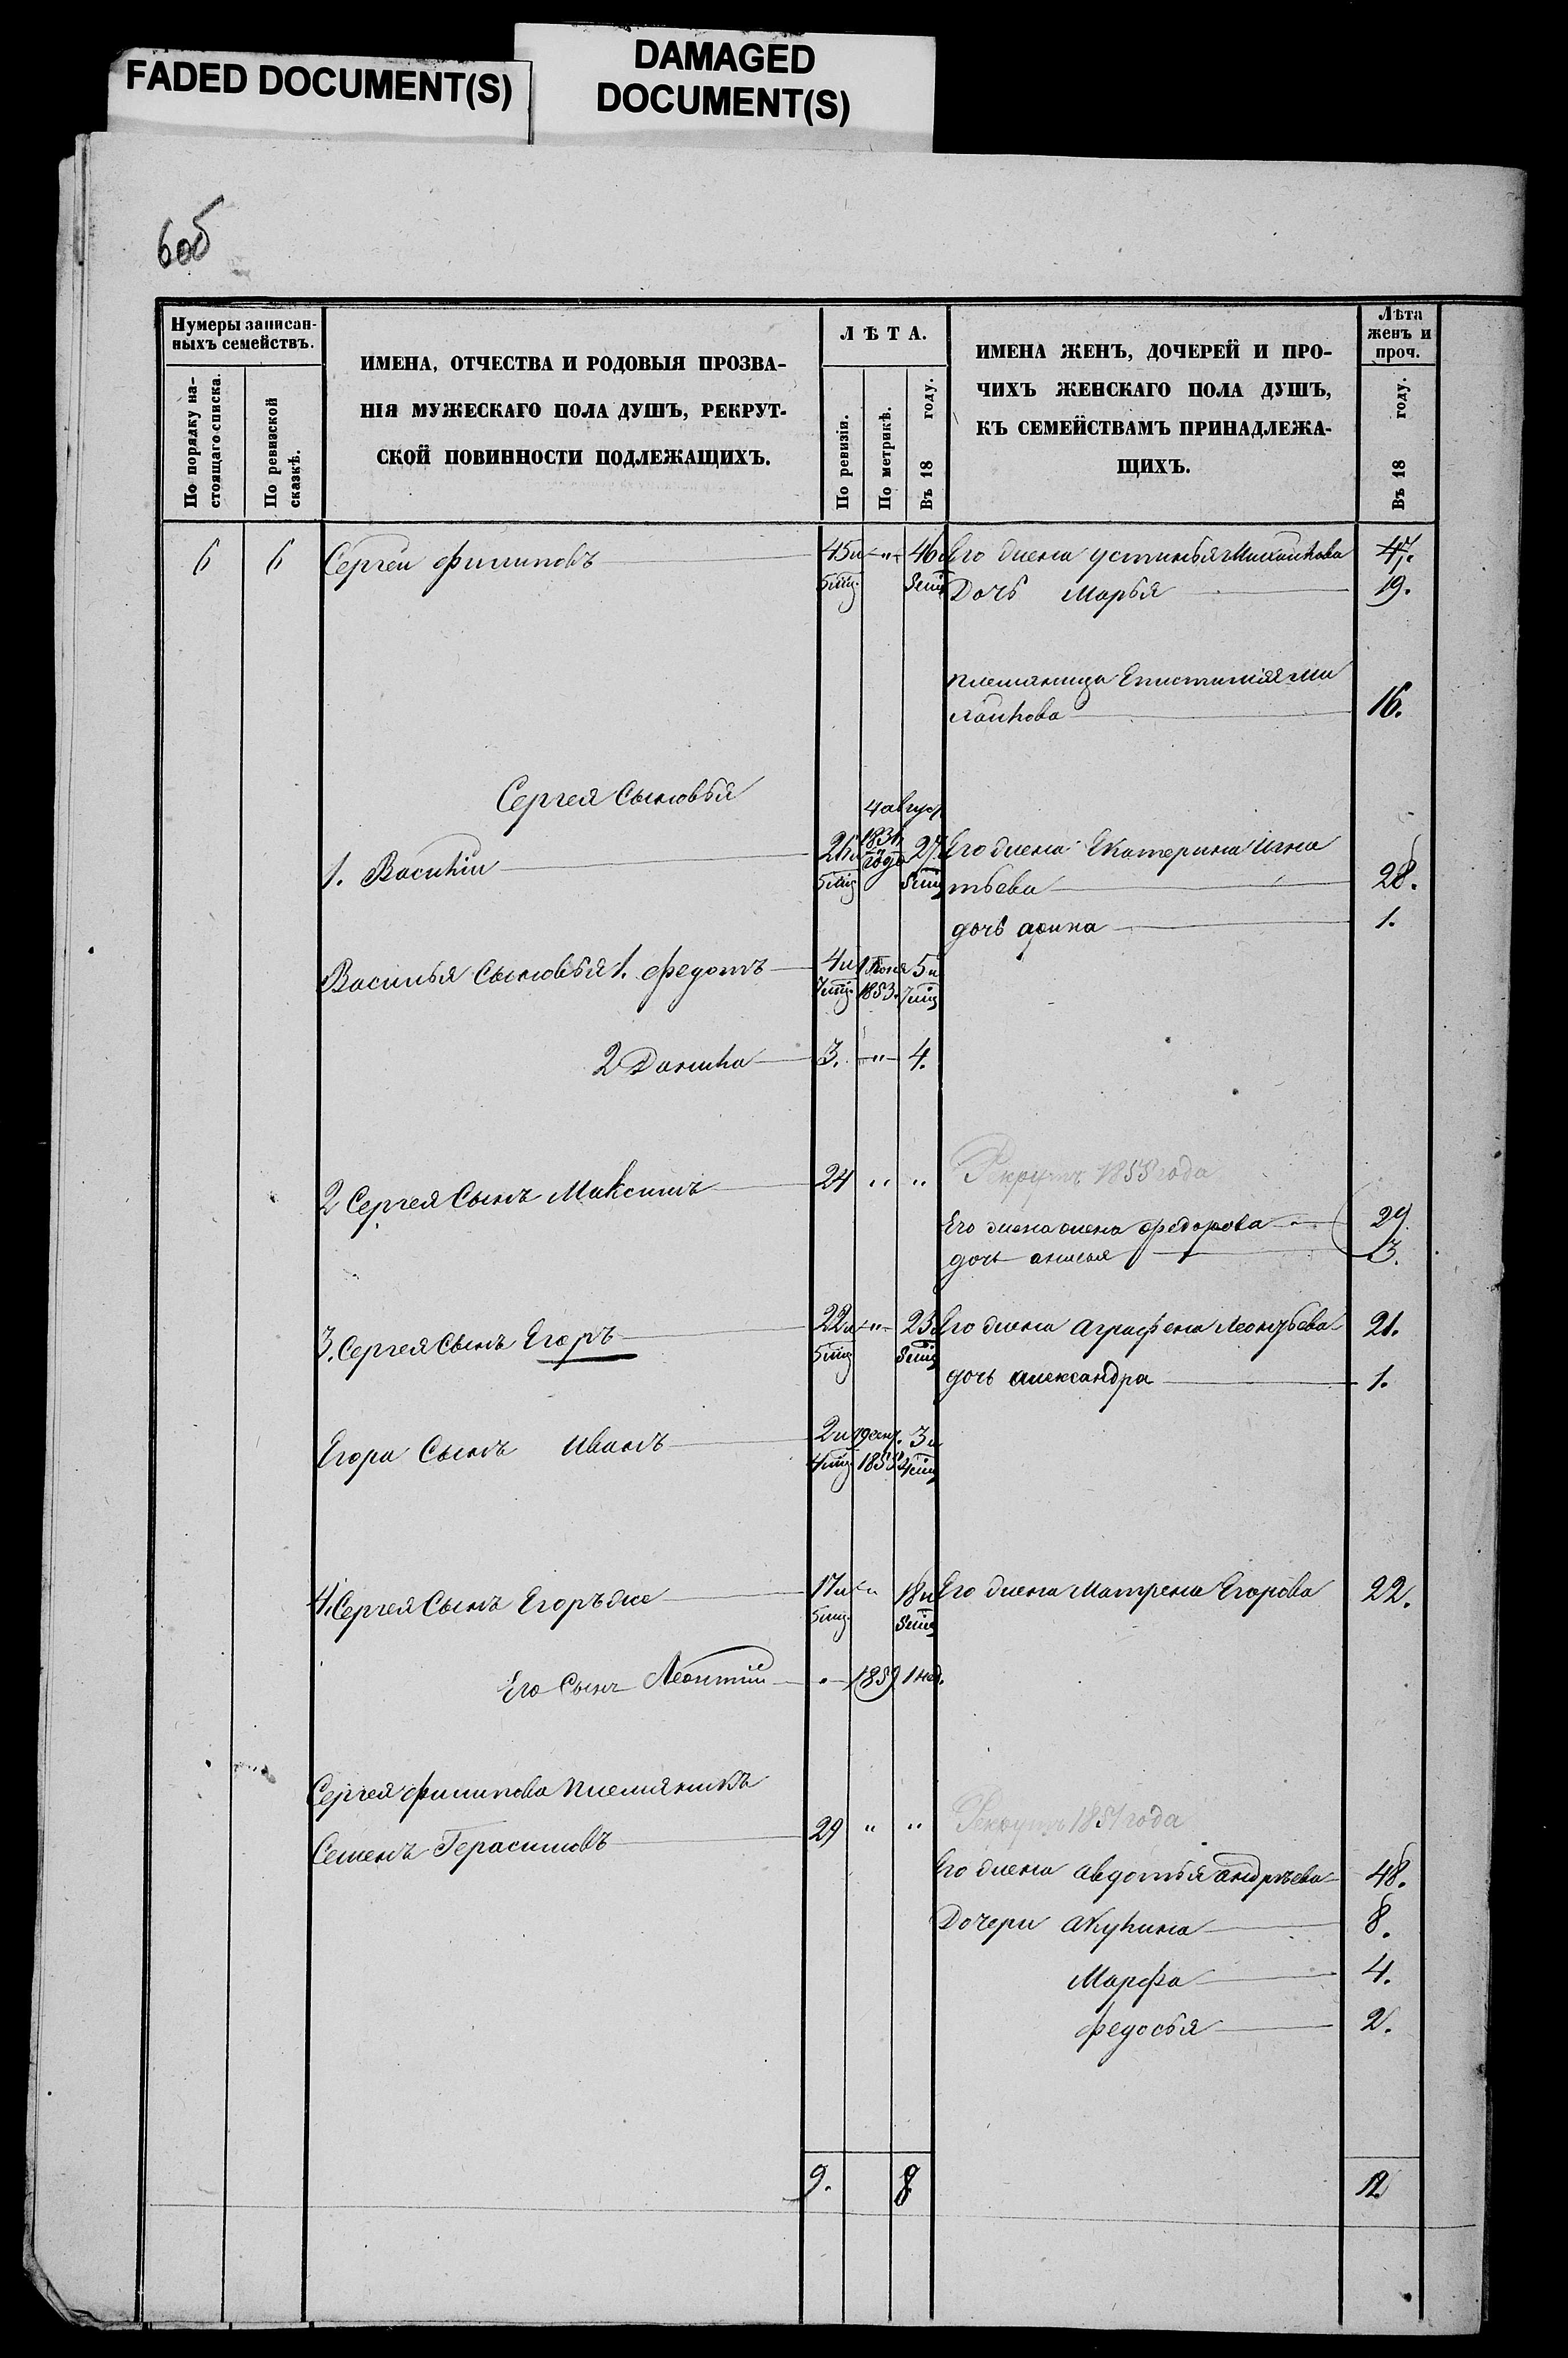 FADED DOCUMENT(S)
DAMAGED
DOCUMENT(S)
6об
Нумеры записан-
ныхъ семействъ.
По порядку на-
стоящаго списка.
По ревизской
сказкѣ.
ИМЕНА, ОТЧЕСТВА И РОДОВЫЯ ПРОЗВА-
НІЯ МУЖЕСКАГО ПОЛА ДУШЪ, РЕКРУТ-
СКОЙ ПОВИННОСТИ ПОДЛЕЖАЩИХЪ.
ЛѢТА.
По ревизіи.
По метрикѣ.
Въ 18 году.
ИМЕНА ЖЕНЪ, ДОЧЕРЕЙ И ПРО-
ЧИХЪ ЖЕНСКАГО ПОЛА ДУШЪ,
КЪ СЕМЕЙСТВАМЪ ПРИНАДЛЕЖА-
ЩИХЪ.
Лѣта
женъ и
проч.
Въ 18 году.
6 6 Сергей Филиповъ 45 и " 46 и Его жена устинья Михайлова 47.
5 мѣц. 8 мѣц Дочь Марья 19.
племяница Епистимія Ми
хайлова 16.
Сергея Сыновья
4 август
1. Василій 26 и 1831 года 27 и Его жена Екатерина Игна
5 мѣц 8 мѣц тьева 28.
дочь арина 1.
Василья Сыновья 1. Федотъ 4 и 1 Іюня 5 и
7 мѣц. 1853. 7 мѣц
2 Данила 3. " 4.
2 Сергея Сынъ Максимъ 24 " " Рекрутъ 1855 года
Его жена олена федорова 29
дочь анисья 3.
3. Сергея Сынъ Егоръ 22 и " 23 и Его жена Аграфена Леонтьева 21.
5 мѣц 8 мѣц
дочь александра 1.
Егора Сынъ Иванъ 2 и 19 сент. 3 и
4 мѣц 1855 4 мѣц
4. Сергея Сынъ Егоръ же 17 и " 18 и Его жена Матрена Егорова 22.
5 мѣц. 8 мѣц
Его Сынъ Леонтий 1859 1 нед.
Сергея филипова племяникъ
Семенъ Герасимовъ 29 " " Рекрутъ 1854 года
Его жена авдотья андрѣева 48.
Дочери акулина 8.
Марфа 4.
федосья 2.
9. 8 12